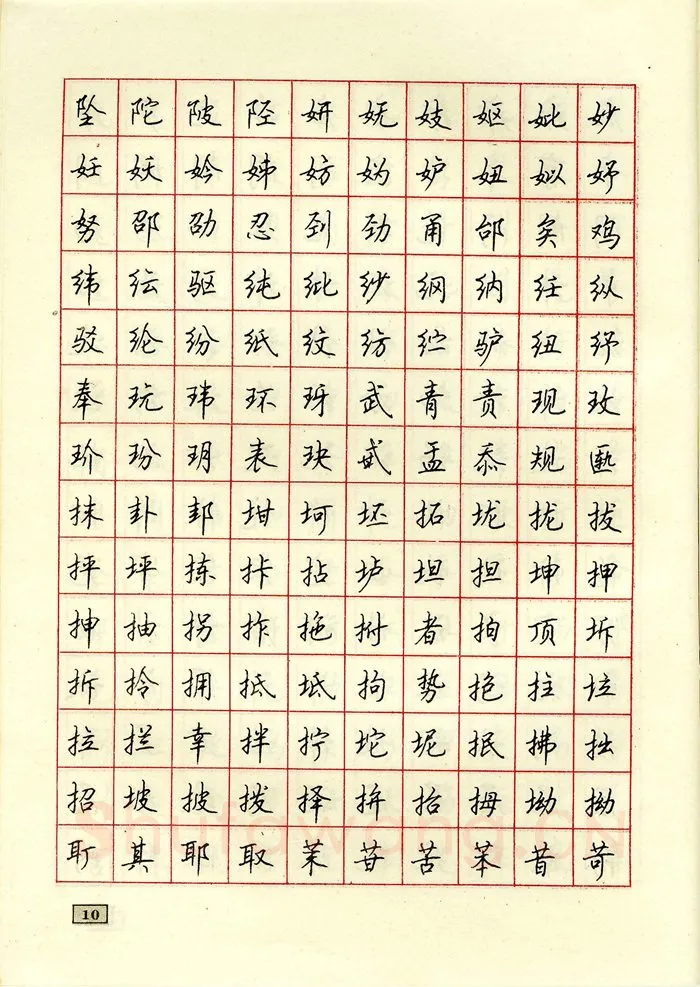 坠 陀 陂 陉 妍 妩 妓 妪 妣 妙
妊 妖 妗 姊 妨 妫 妒 妞 姒 妤
努 邵 劭 忍 刭 劲 甬 邰 矣 鸡
纬 纭 驱 纯 纰 纱 纲 纳 纴 纵
驳 纶 纷 纸 纹 纺 纻 驴 纽 纾
奉 玩 玮 环 玡 武 青 责 现 玫
玠 玢 玥 表 玦 甙 盂 忝 规 匦
抹 卦 邽 坩 坷 坯 拓 垅 拢 拔
抨 坪 拣 拤 拈 垆 坦 担 坤 押
抻 抽 拐 拃 拖 拊 者 拍 顶 坼
拆 拎 拥 抵 坻 拘 势 抱 拄 垃
拉 拦 幸 拌 拧 坨 坭 抿 拂 拙
招 坡 披 拨 择 拚 抬 拇 坳 拗
耵 其 耶 取 茉 苷 苦 苯 昔 苛
10
shufawang.CN